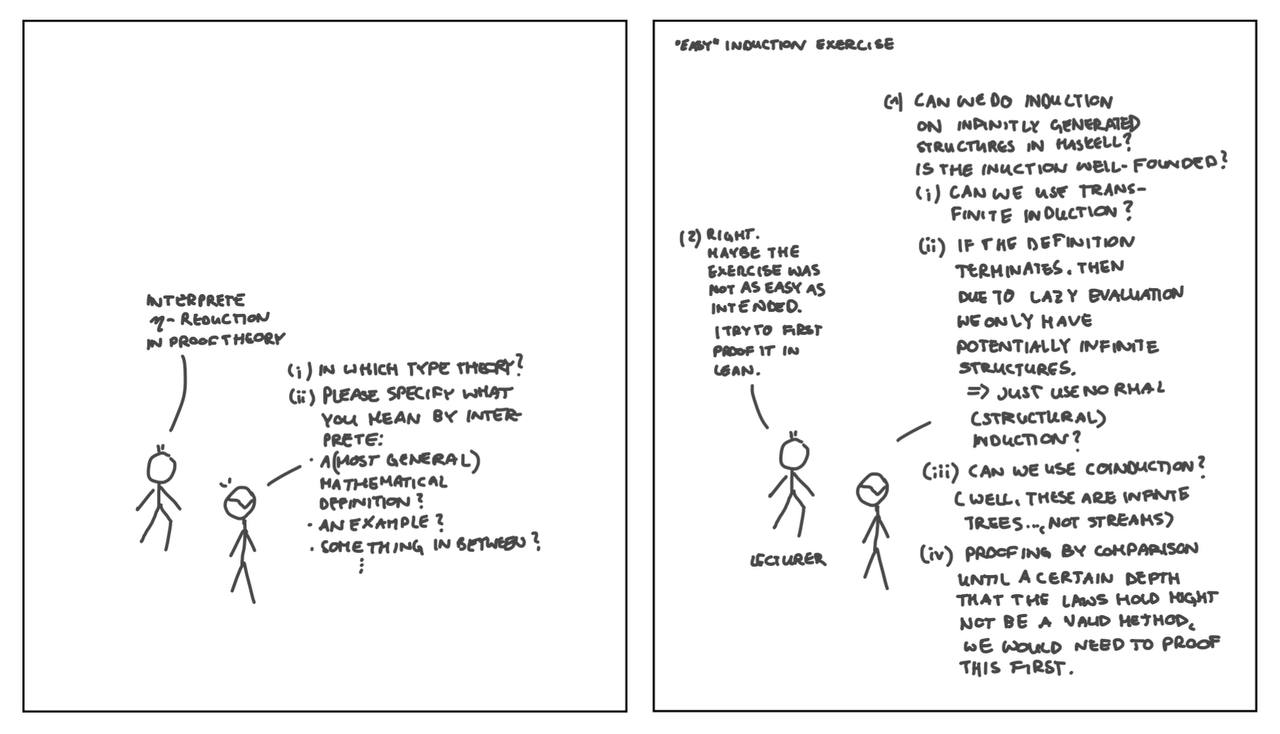 INTERPRETE
η-REDUCTION
IN PROOF THEORY
(i) IN WHICH TYPE THEORY?
(ii) PLEASE SPECIFY WHAT
YOU MEAN BY INTER-
PRETE:
· A (MOST GENERAL)
MATHEMATICAL
DEFINITION?
· AN EXAMPLE?
· SOMETHING IN BETWEEN?
⋮
"EASY" INDUCTION EXERCISE
(1) CAN WE DO INDUCTION
ON INFINITLY GENERATED
STRUCTURES IN HASKELL?
IS THE INUCTION WELL-FOUNDED?
(i) CAN WE USE TRANS-
FINITE INDUCTION?
(ii) IF THE DEFINITION
TERMINATES, THEN
DUE TO LAZY EVALUATION
WE ONLY HAVE
POTENTIALLY INFINITE
STRUCTURES.
=> JUST USE NORMAL
(STRUCTURAL)
INDUCTION?
(iii) CAN WE USE COINDUCTION?
(WELL, THESE ARE INFINTE
TREES..., NOT STREAMS)
(iv) PROOFING BY COMPARISON
UNTIL A CERTAIN DEPTH
THAT THE LAWS HOLD MIGHT
NOT BE A VALID METHOD,
WE WOULD NEED TO PROOF
THIS FIRST.
(2) RIGHT.
MAYBE THE
EXERCISE WAS
NOT AS EASY AS
INTENDED.
I TRY TO FIRST
PROOF IT IN
LEAN.
LECTURER